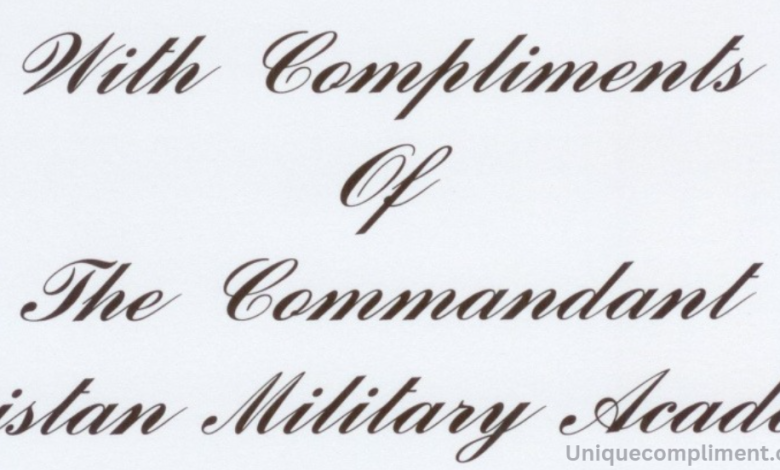 With Compliments
Of
The Commandant
istan Military Acad
Uniquecompliment.